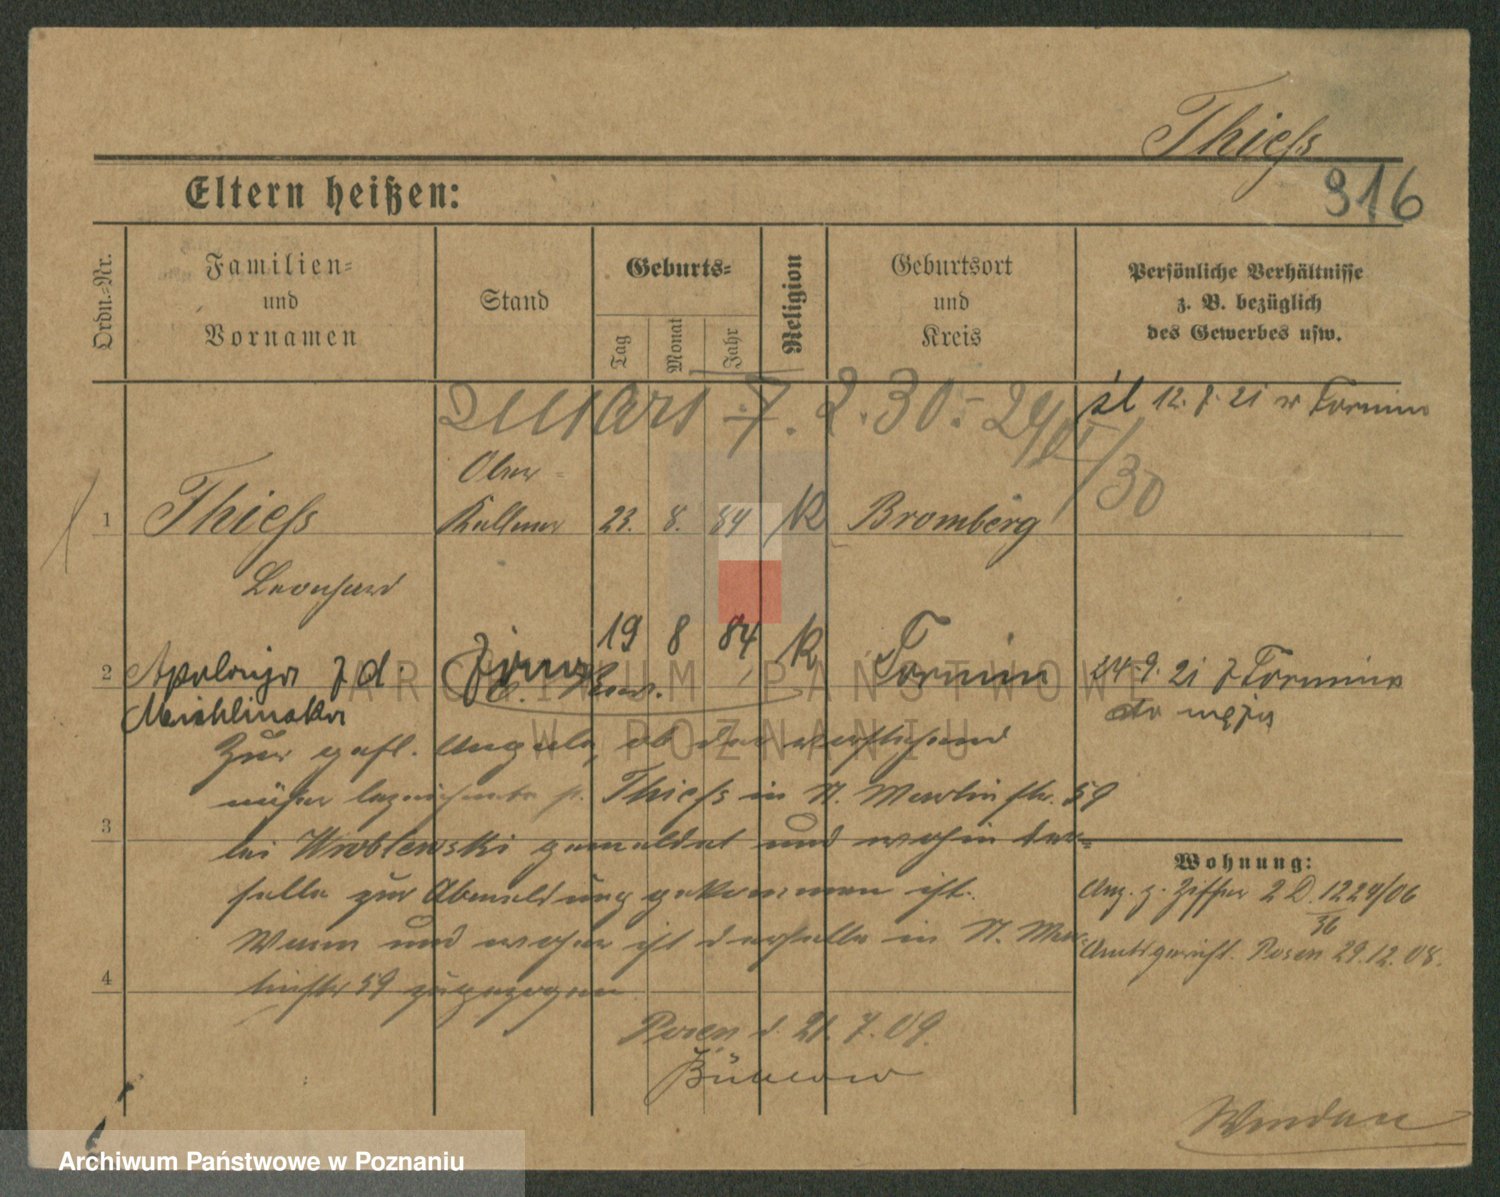 Thiess
316
Eltern heißen:
Ordn.-Nr.
Familien-
und
Vornamen
Stand
Geburts-
Tag
Monat
Jahr
Religion
Geburtsort
und
Kreis
Persönliche Verhältnisse
z. B. bezüglich
des Gewerbes usw.
7. 2. 30.
śl 12. 7. 21 w
1
Thiess
Ober-
Kellner
23. 8. 84
K
Bromberg
Leonhard
2
Apolonja z d.
Michlinska
żona
19 8 84
K
24. 9. 21 z
do męża
Zur gefl. Angabe, ob der
bezeichnete p. Thiess in St. Martinstr. 59
3
bei Wroblewski gemeldet und wohin der-
selbe zur Abmeldung gekommen ist.
Wann und woher ist derselbe in St. Mar-
4
tinstr 59 zugezogen
Posen d. 21. 7. 09.
Wohnung:
Anz. z. Ziffer 2 D. 1224/06
36
Amtsgericht. Posen 29. 12. 08.
ARCHIWUM PAŃSTWOWE
W POZNANIU
Archiwum Państwowe w Poznaniu